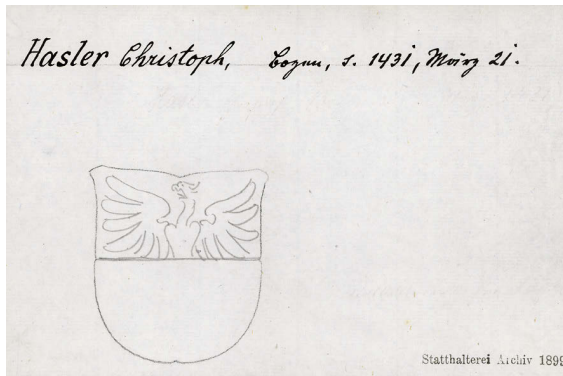 Hasler Christoph, Bozen, s. 1431, März 21.
Statthalterei Archiv 1899